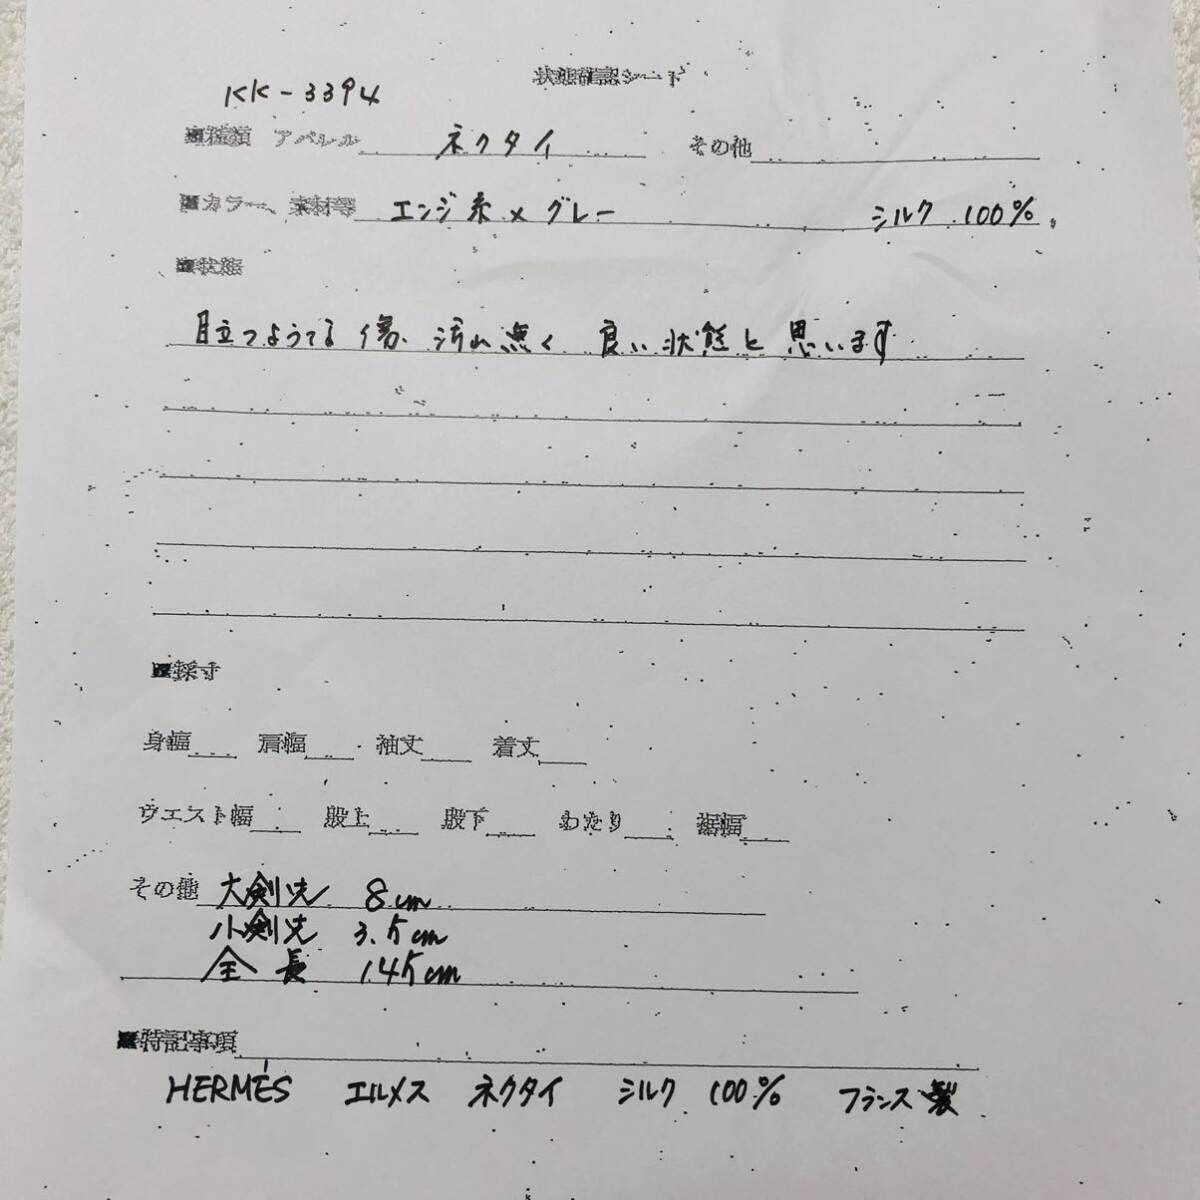 状態確認シート
KK-3394
■種類 アパレル ネクタイ その他
■カラー、素材等 エンジ系×グレー シルク 100%
■状態
目立つようてる傷、汚れ無く 良い状態と思います
■採寸
身幅 肩幅 袖丈 着丈
ウエスト幅 股上 股下 わたり 裾幅
その他 大剣先 8cm
小剣先 3.5cm
全長 145cm
■特記事項
HERMÈS エルメス ネクタイ シルク 100% フランス製